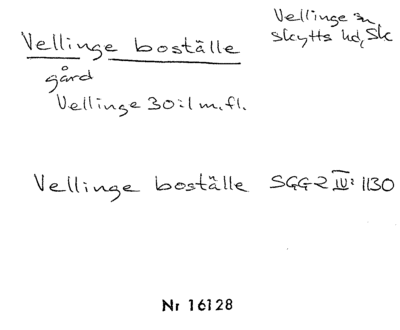 Vellinge boställe
gård
Vellinge 30:1 m.fl.
Vellinge sn
Skytts hd, Sk
Vellinge boställe SGG2 IV: 1130
Nr 16128